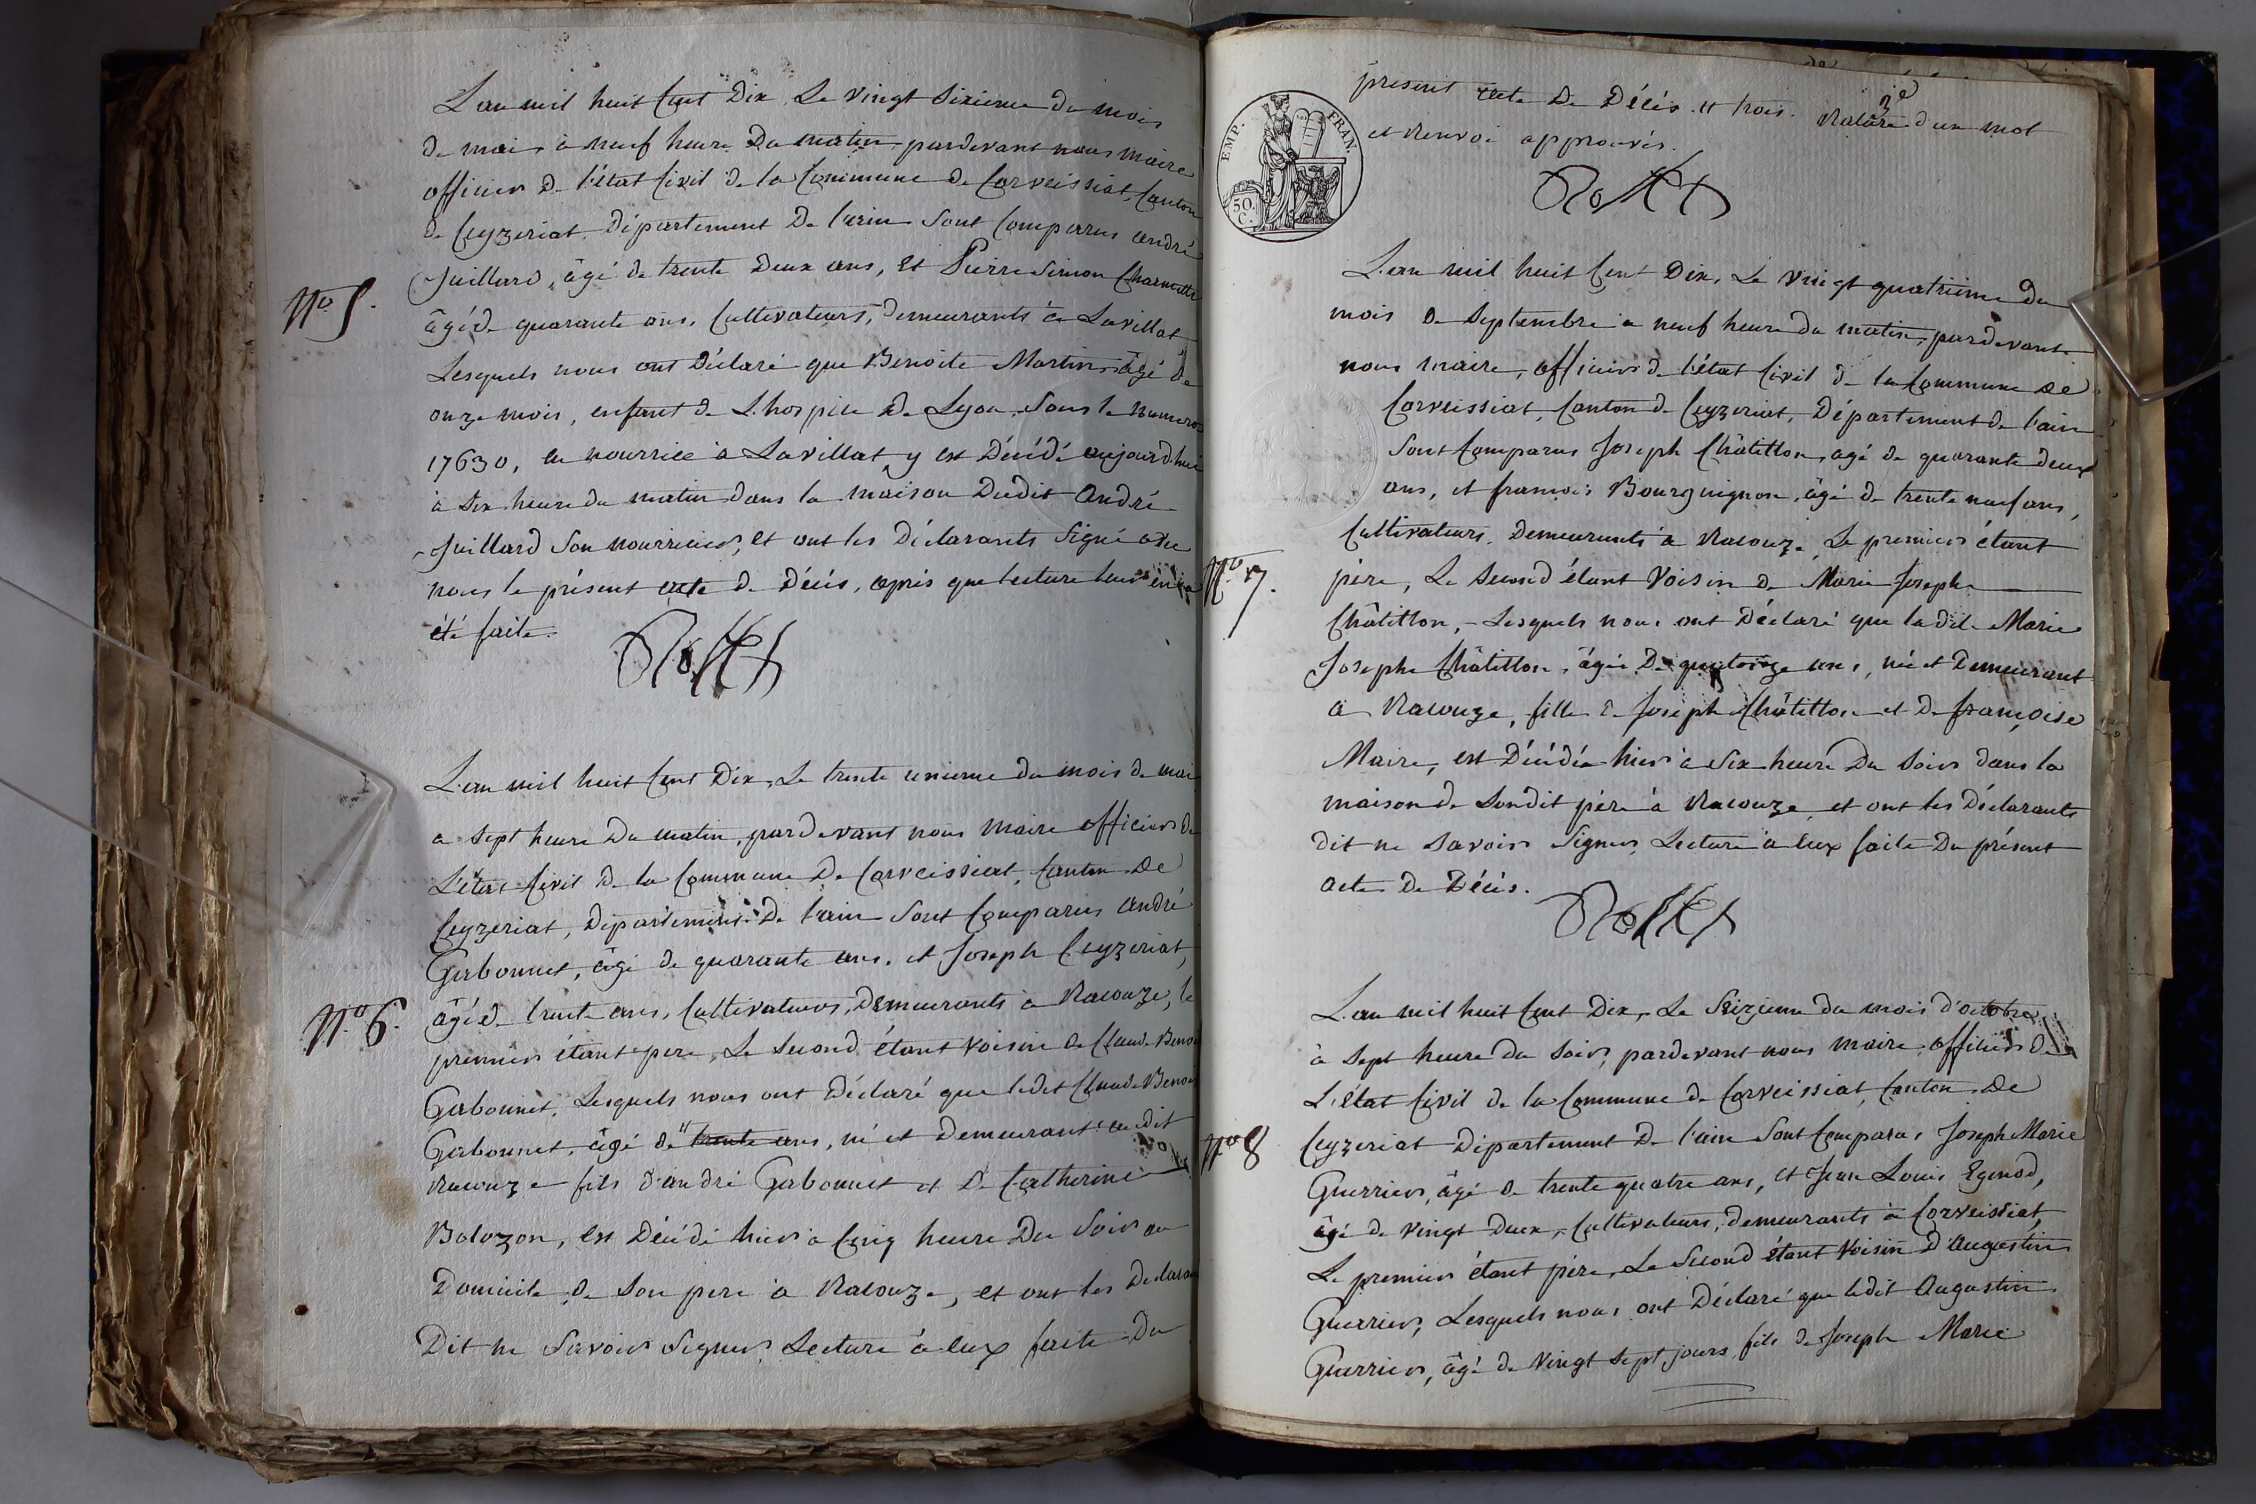 L'an mil huit Cent Dix, Le vingt sixieme du mois
de mai à neuf heure du matin pardevant nous maire
officier de l'état Civil de la Commune de Corveissiat, Canton
de Ceyzeriat Département De l'ain Sont Comparus andré
Juillard, âgé de trente Deux ans, et Pierre Simon Charnette
No 5.
âgé de quarante ans, Cultivateurs, demeurants à Lavillat
Lesquels nous ont Déclaré que Benoite Martin âgé de
onze mois, enfant de L'hospice de Lyon, Sous le numero
17630, en nourrice à Lavillat y est Décédé aujourd'hui
à Six heure du matin dans la maison Dudit André
Juillard Son nourricier, et ont les Déclarants Signé avec
nous le présent acte de Décès, après que lecture leur en a
été faite.
L'an mil huit Cent Dix, Le trente unieme du mois de mai
a sept heure Du matin, pardevant nous maire officier de
L'état Civil de la Commune De Corveissiat, Canton De
Ceyzeriat, Département De l'ain Sont Comparus André
Gerbonnet, âgé de quarante ans, et Joseph Ceyzeriat,
No 6.
âgé de trente ans, Cultivateurs, Demeurants à Racouze, le
premier étant pere, Le Second étant Voisin de Claude Benoi
Gerbonnet, Lesquels nous ont Déclaré que ledit Claude Benoi
Gerbonnet, âgé de trente ans, né et Demeurant audit
Racouze fils d'andré Gerbonnet et De Catherine
Bolozon, est Décédé hier à Cinq heure Du Soir au
Domicile de Son pere à Racouze, et ont les Declarans
Dit ne Savoir Signer Lecture à eux faite Du
EMP. FRAN.
50. C.
présent acte De Décès et trois. Rature d'un mot
et renvoi approuvés.
L'an mil huit Cent Dix, Le vingt quatrième du
mois de Septembre a neuf heure du matin, pardevant
nous maire, officier de l'état Civil de la Commune de
Corveissiat, Canton de Ceyzeriat, Département de l'ain
Sont Comparus Joseph Châtillon, agé de quarante deux
ans, et françois Bourguignon, âgé de trente neuf ans,
Cultivateurs Demeurants à Racouze Le premier étant
No 7.
père, Le Second étant Voisin de Marie Josephe
Châtillon, Lesquels nous ont Déclaré que la dite Marie
Josephe Châtillon, âgée De quatorze ans, née et Demeurant
à Racouze, fille de Joseph Châtillon et De françoise
Maire, est Décédée hier à Six heure Du Soir dans la
maison de Sondit père à Racouze et ont les Déclarants
dit ne Savoir Signer Lecture à eux faite Du présent
acte De Décès.
L'an mil huit Cent Dix, Le Seizieme du mois d'octobre
à Sept heure Du Soir, pardevant nous maire officier De
L'état Civil de la Commune de Corveissiat, Canton De
No 8
Ceyzeriat Département De l'ain Sont Comparus Joseph Marie
Guerrier, âgé de trente quatre ans, et Jean Louis Egenod,
âgé de vingt Deux, Cultivateurs, demeurants à Corveissiat,
Le premier étant père, Le Second étant Voisin D'Augustin
Guerrier, Lesquels nous ont Déclaré que ledit Augustin
Guerrier, âgé de Vingt Sept jours, fils de Joseph Marie